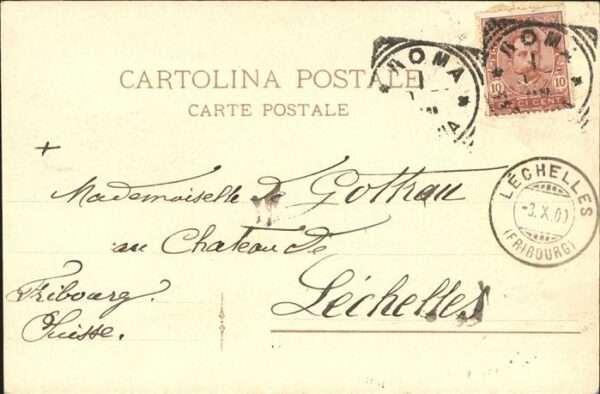 CARTOLINA POSTALE
CARTE POSTALE
ROMA
ROMA
10 10
Mademoiselle de Gottrau
au Chateau de
Léchelles
Fribourg.
Suisse.
LÉCHELLES
-3.X.01
(FRIBOURG)